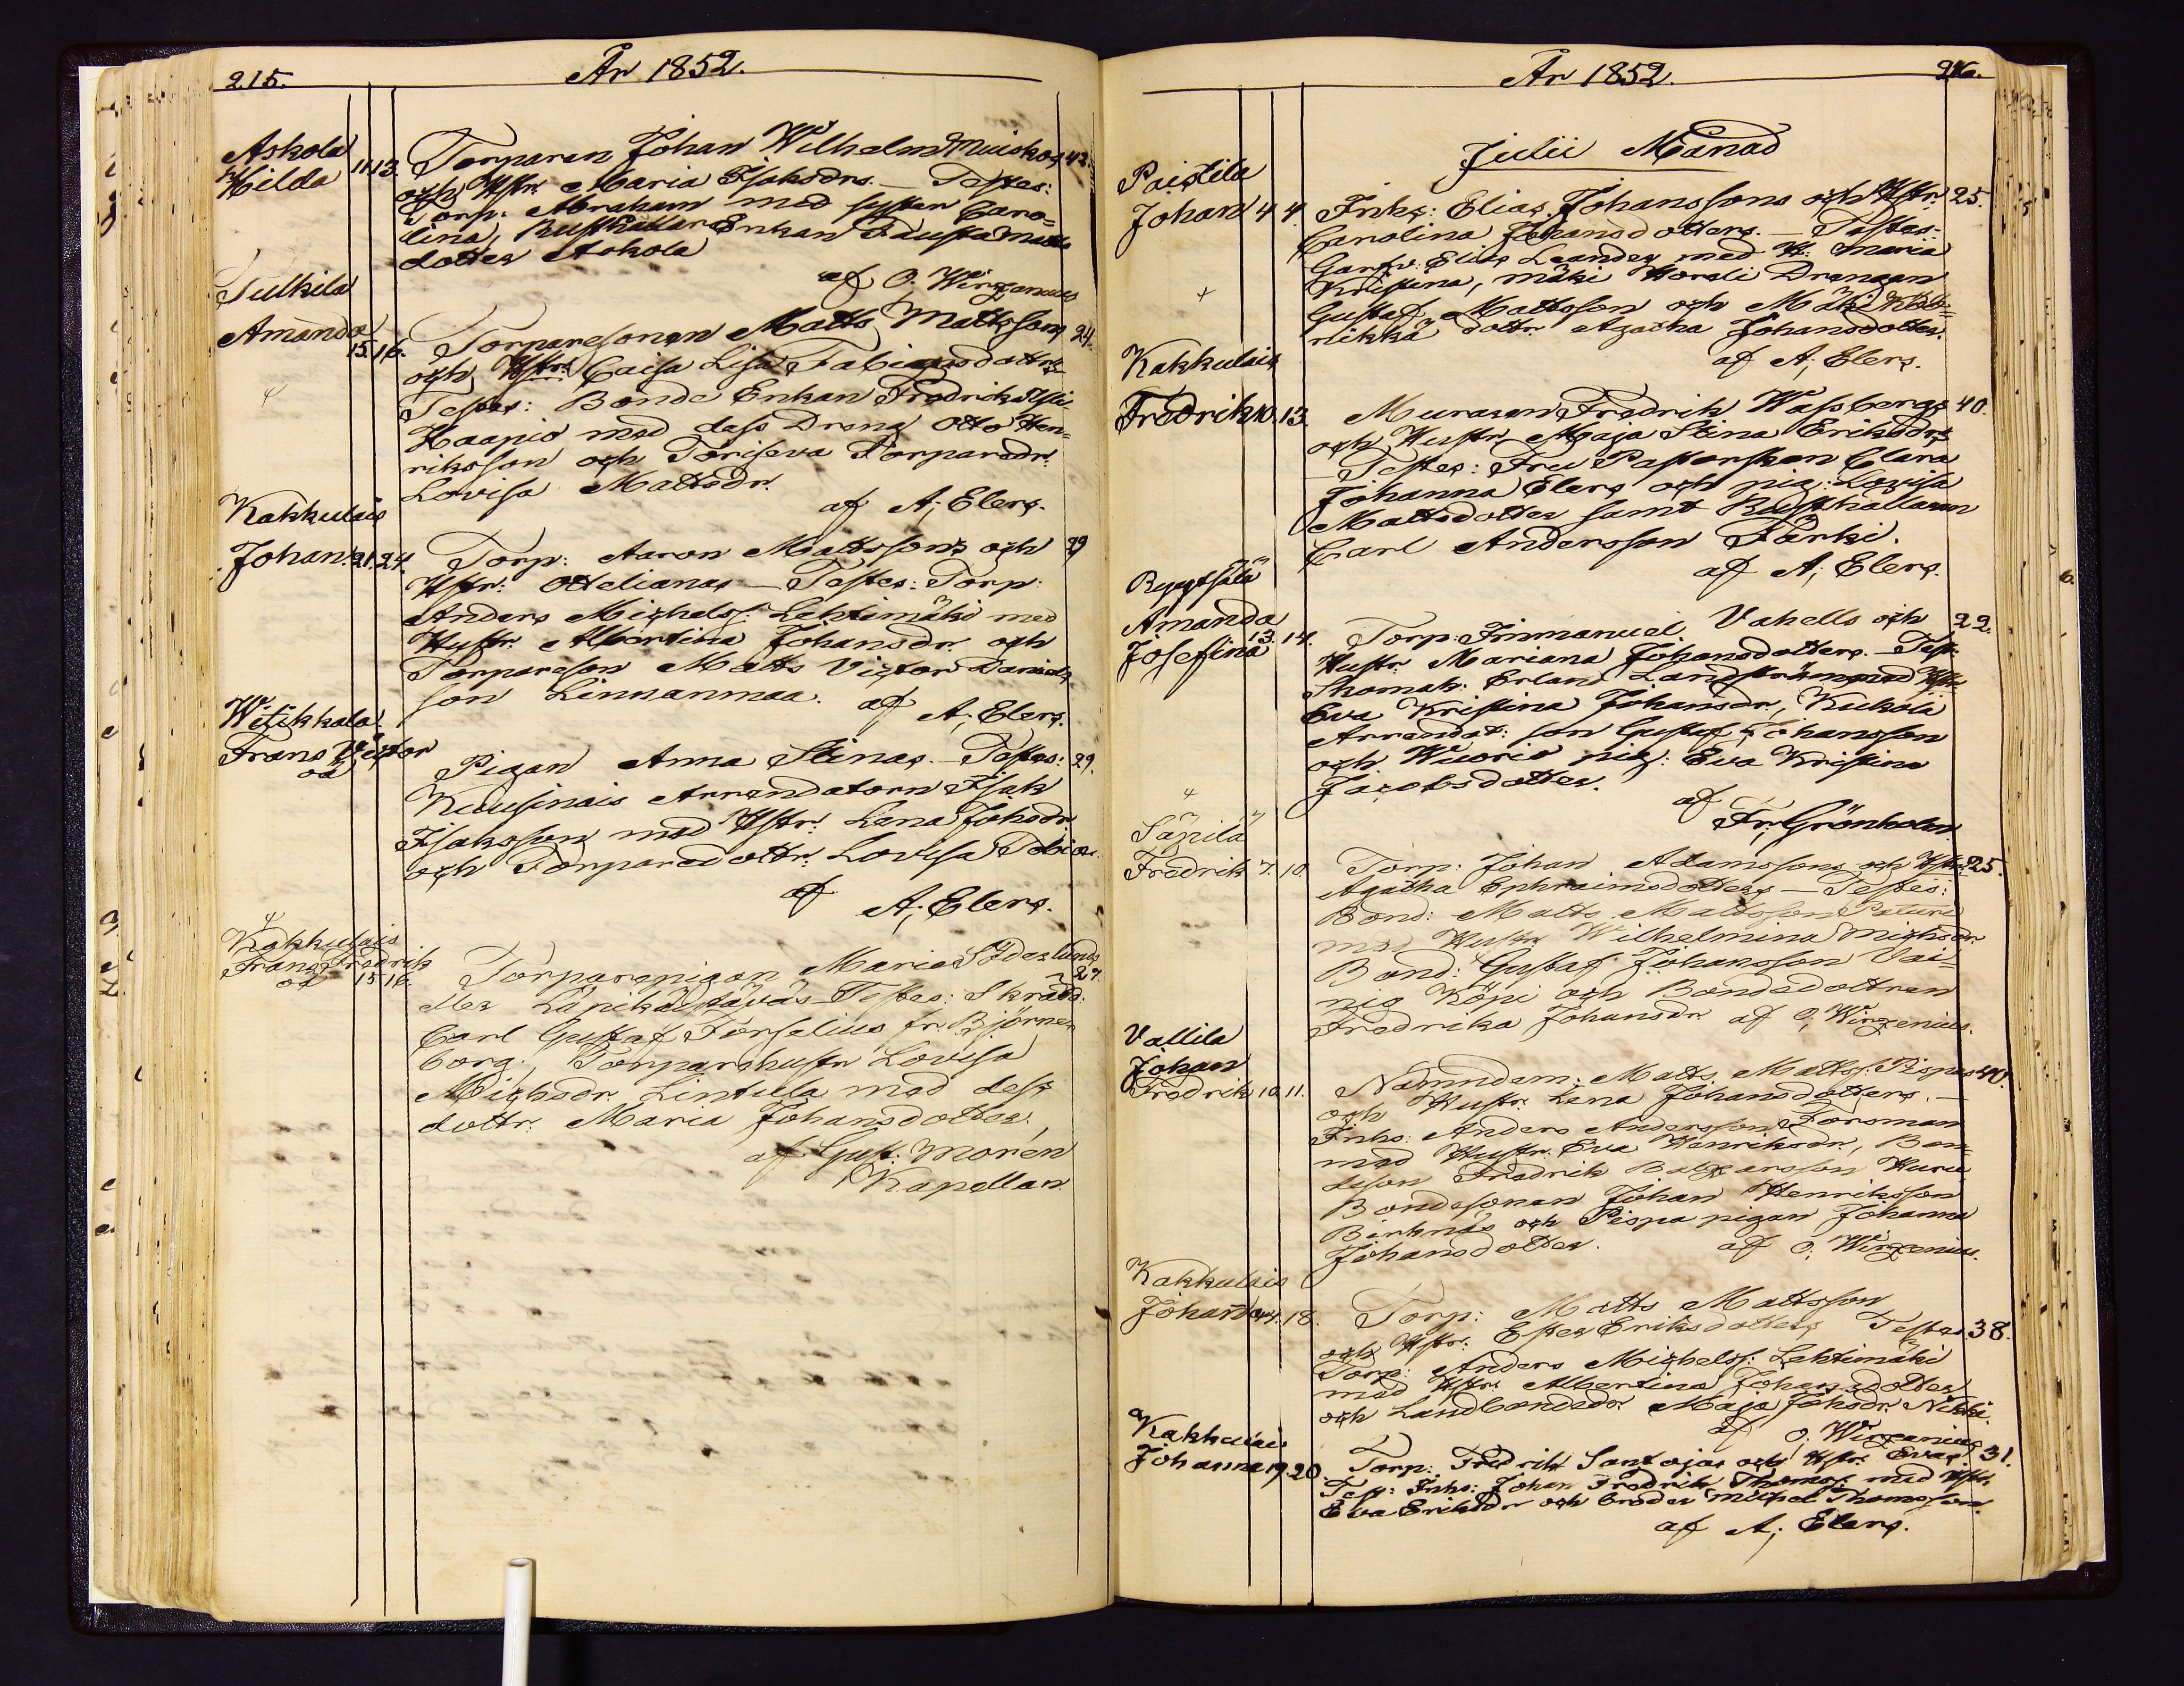 215. År 1852.
Askola
Hilda 11. 13. Torparen Johan Wilhelm Muiskos 42.
och Hstr. Maria Isaksdrs. — Testes:
Torp: Abraham med syster Caro=
lina, Rusthållar Enkan Fausta Matts
dotter Askola
af O. Wirzenius
Sulkila
Amanda 15. 16. Torparesonen Matts Mattssons 24.
och Hstr. Caisa Lisa Fabiansdotters
Testes: Bonde Enkan Fredrika
Haapio med dess Dreng Otto Hen=
riksson och Toriseva Torparedr.
Lovisa Mattsdr.
af A; Elers.
Kakkulais
Johan. 21. 24. Torp: Aaron Mattssons och 29
Hstr: Ottelianas — Testes: Torp:
Anders Michelss: Lehtimäki med
Hustr. Albertina Johansdr. och
Torpareson Matts Victor Daniels
son Linnanmaa. af
A; Elers.
Witikkala
Frans Victor
oä Pigan Anna Stinas. — Testes: 29.
Kuusinais Arrendatorn Isak
Isaksson med Hstr: Lena Johsdr.
och Torparedottr. Lovisa Tobias.
af
A; Elers.
Kakkulais
Frans Fredrik
oä 15 16. Torparepigan Maria Söderlunds 27.
eller Läpikäytäväs — Testes: Skrädd:
Carl Gustaf Forselius fr. Björne
borg, Torparehustr Lovisa
Michsdr. Lintula med dess
dottr. Maria Johansdotter.
af Gust: Morén
Kapellan.
År 1852. 216.
Julii Månad
Paistila
Johan 4 4. Inhs: Elias Johanssons och Hstr 25.
Carolina Johansdotters. — Testes
Garfv: Elias Leander med H: Maria
Kristina, mäki Horeli Drengen
Gustaf Mattsson och Mäki
rikka dottr Agatha Johansdotter.
af A; Elers.
Kakkulais
Fredrik 10. 13. Muraren Fredrik Wassbergs 40.
och Hustr. Maja Stina Eriksdrs
— Testes: Fru Pastorskan Clara
Johanna Elers och pig: Lovisa
Mattsdotter samt Rusthållaren
Carl Andersson Färki.
af A; Elers.
Ryystsälä
Amanda
Josefina 13. 14. Torp: Immanuel Vahells och 22.
Hustr. Mariana Johansdotters. — Test.
Skomak: Erland Landström med Hstr
Eva Kristina Johansdr, Kukola
Arrendat: son Gustaf Johansson
och Wuorio pig: Eva Kristina
Jacobsdotter.
af
Fr. Grönholm.
Säpilä
Fredrik 7. 10 Torp: Johan Adamssons och Hstr 25.
Agatha Ephraimsdotters — Testes:
Bond: Matts Mattsson Paturi
med Hustr Wilhelmina Michsdr.
Bond: Gustaf Johansson Vai=
nio Köpi och Bondedottren
Fredrika Johansdr. af O; Wirzenius.
Vallila
Johan
Fredrik 10. 11. Nämndem: Matts Mattss: Pispas 40.
och Hustr: Lena Johansdotters. —
Inhs: Anders Andersson Forsman
med Hustr. Eva Henriksdr., Bon=
deson Fredrik Baltzarsson Huru
Bondesonen Johan Henriksson
Birknäs och Pispa pigan Johanna
Johansdotter. af O; Wirzenius.
Kakkulais
Johanna 14. 18. Torp: Matts Mattsson
och Hstr: Ester Eriksdotters Testes 38.
Torp: Anders Michelss: Lehtimäki
med Hstr. Albertina Johansdotter
och Landbondedr Maja Johsdr. Nikki.
af O; Wirzenius
Kakkulais
Johanna 19. 20 Torp: Fredrik Santojas och Hstr. Evas. 31.
Test: Inhs: Johan Fredrik Thomass: med Hstr.
Eva Eriksdr och broder Michel Thomsson.
af A; Elers.